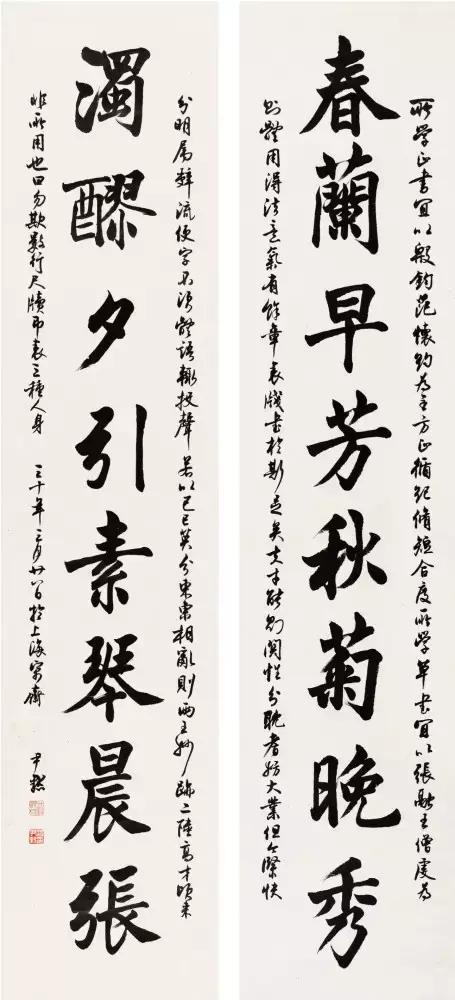 所學正書宜以殷鈞范懷約為主方正循紀脩短合度所學草書宜以張融王僧虔為
春蘭早芳秋菊晚秀
則體用得法意氣有餘章表牋書於斯足矣夫才能則關性分耽嗜妨大業但令緊快
分明屬辭流便字不須體語輒投聲若以已巳莫分東柬相亂則兩王妙跡二陸高才頃來
濁醪夕引素琴晨張
非所用也曰勿欺數行尺牘即表三種人身 三十年三月廿 於上海 齋 尹默